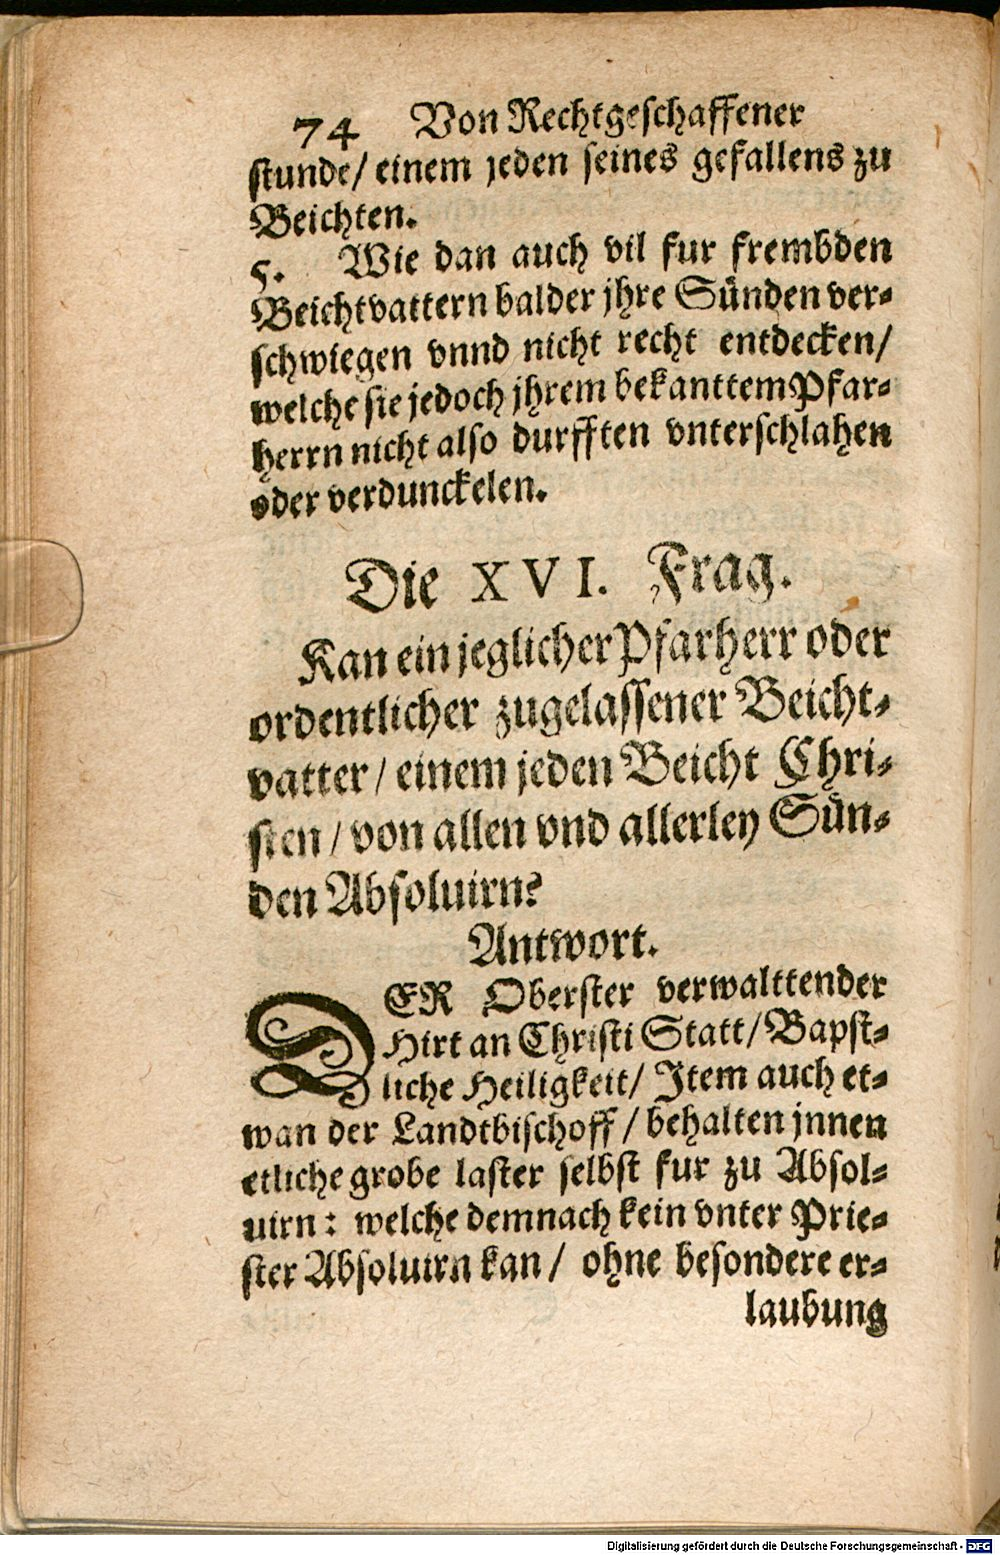 74 Von Rechtgeschaffener
stunde/ einem jeden seines gefallens zu
Beichten.
5. Wie dan auch vil fur frembden
Beichtvattern balder jhre Sünden ver-
schwiegen vnnd nicht recht entdecken/
welche sie jedoch jhrem bekanttem Pfar-
herrn nicht also durfften vnterschlahen
oder verdunckelen.
Die XVI. Frag.
Kan ein jeglicher Pfarherr oder
ordentlicher zugelassener Beicht-
vatter/ einem jeden Beicht Chri-
sten/ von allen vnd allerley Sün-
den Absoluirn?
Antwort.
DER Oberster verwalttender
Hirt an Christi Statt/ Bapst-
liche Heiligkeit/ Item auch et-
wan der Landtbischoff/ behalten jnnen
etliche grobe laster selbst fur zu Absol-
uirn: welche demnach kein vnter Prie-
ster Absoluirn kan/ ohne besondere er-
laubung
Digitalisierung gefördert durch die Deutsche Forschungsgemeinschaft - DFG